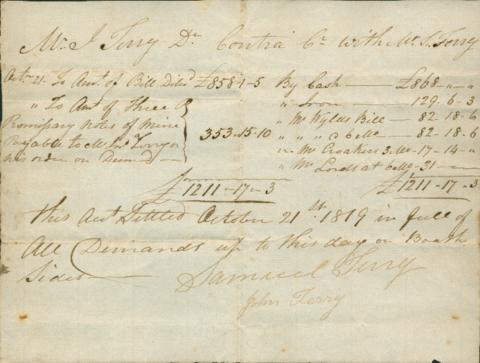 Mr. J Terry Dr Contra Cr with Mr. S. Terry
Octr 21. To Amt of Bill Dited £858-1-5 By Cash £868 " "
" To Amt of three " Iron 129-6-3
Promissory Notes of mine " Mr Wyllis Bill 82-18-6
Payable to Mr Jno Terry or 353-15-10 " " " 82-18-6
his order on Demand " Mr Croakers 17-14-"
" Mr Lords at 31
£1211-17-3 £1211-17-3
this Amt Settled October 21st 1819 in full of
All Demands up to this day on Boath
Sides
Samuel Terry
John Terry